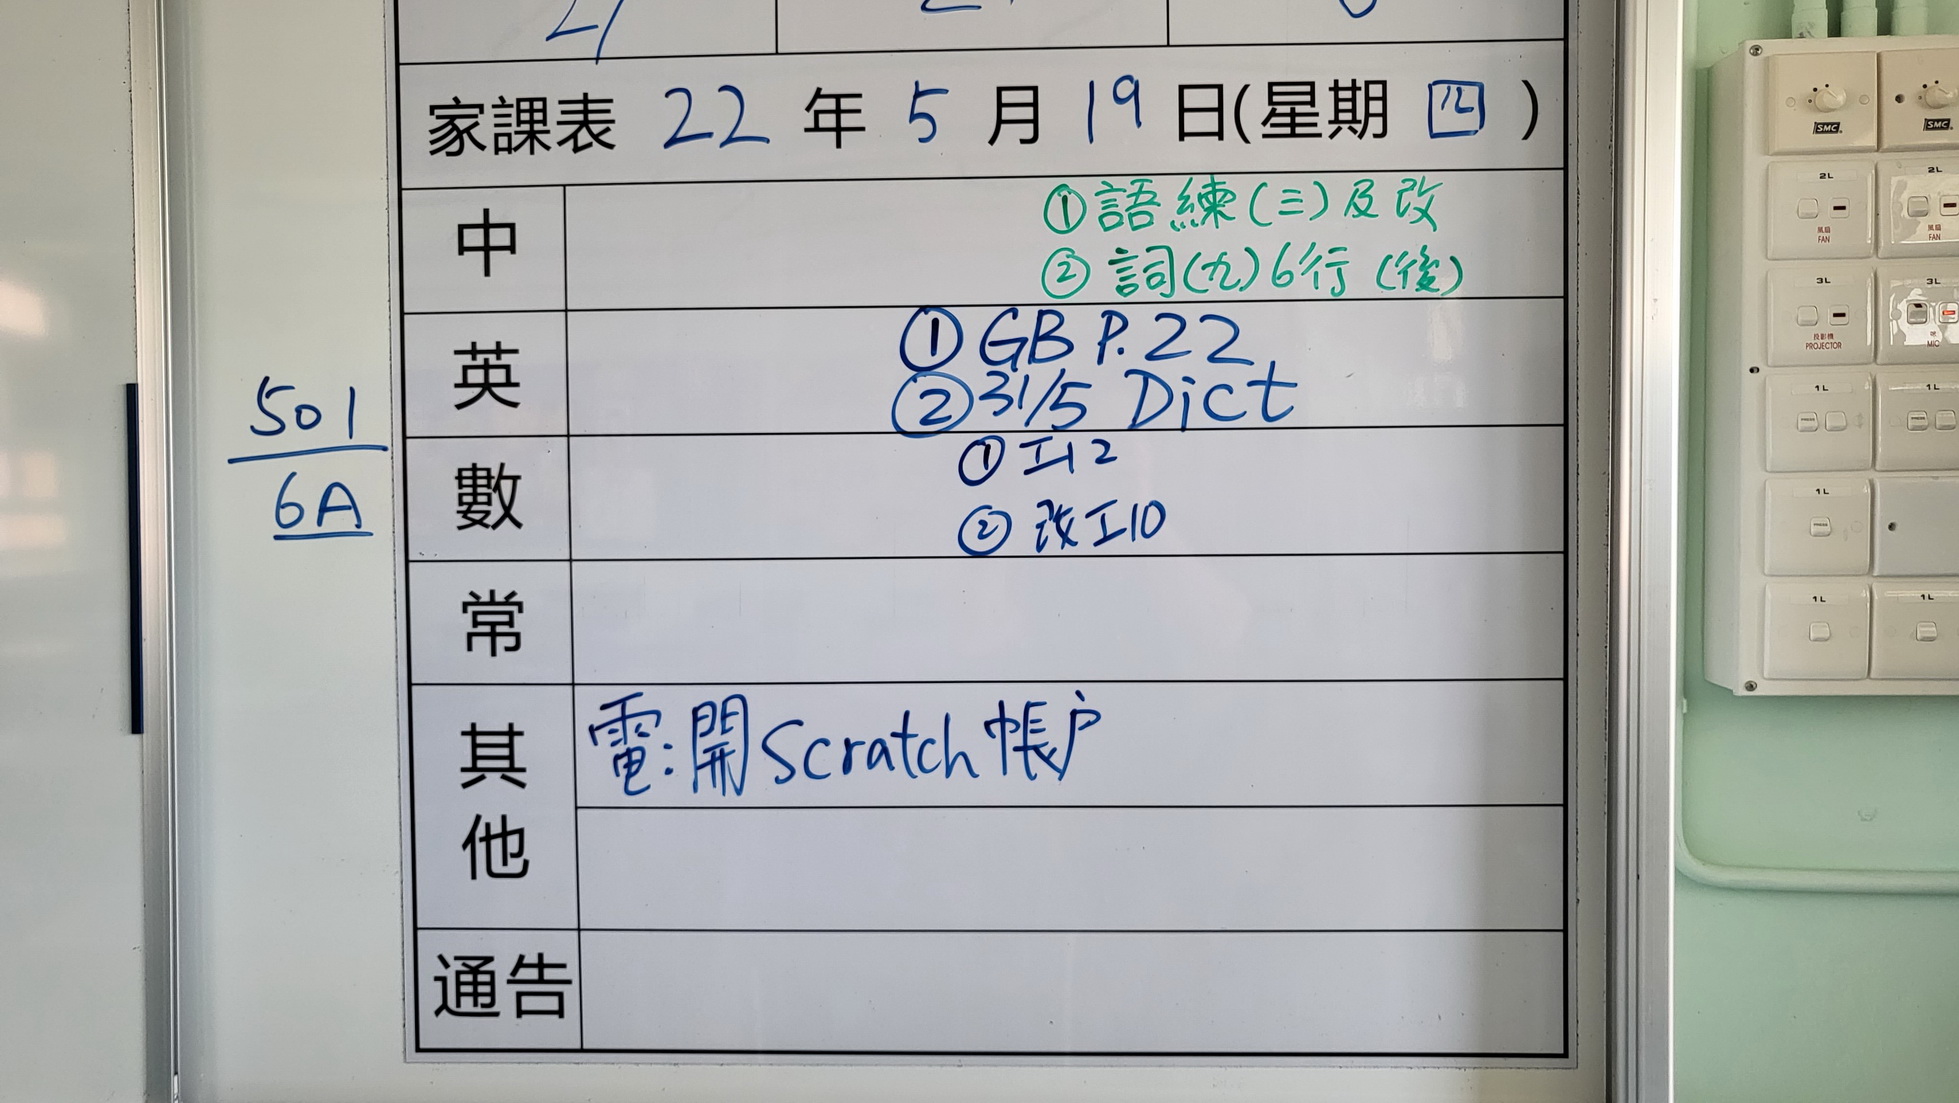 家課表 22 年 5 月 19 日(星期 四 )
中
①語練(三)及改
②詞(九)6行(後)
英
①GB P.22
②31/5 Dict
501
6A
數
①工12
②改工10
常
其他
電:開Scratch帳户
通告
SMC
SMC
2L
2L
風扇
FAN
風扇
FAN
3L
3L
投影機
PROJECTOR
MIC
1L
1L
1L
1L
1L